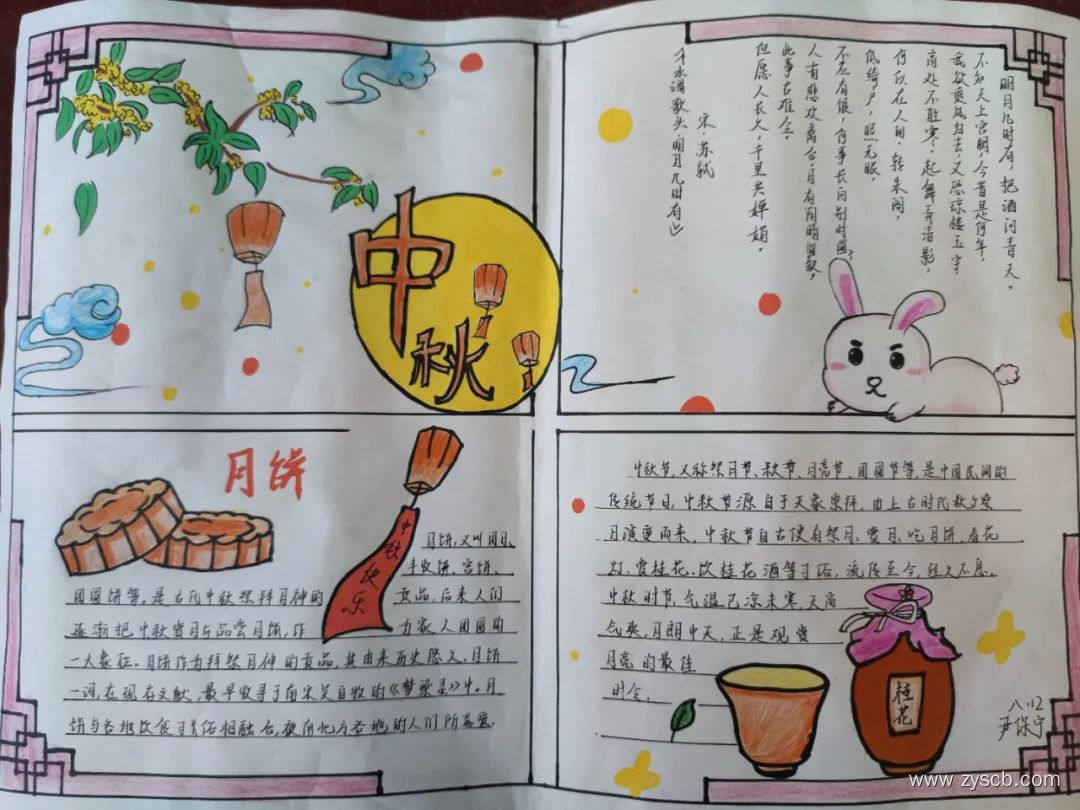 中秋
明月几时有，把酒问青天。
不知天上宫阙，今昔是何年，
我欲乘风归去，又恐琼楼玉宇，
高处不胜寒。起舞弄清影，
何似在人间。转朱阁，
低绮户，照无眠。
不应有恨，何事长向别时圆，
人有悲欢离合，月有阴晴圆缺，
此事古难全。
但愿人长久，千里共婵娟。
宋·苏轼
《水调歌头·明月几时有》
月饼
中秋快乐
月饼，又叫月团、
丰收饼、宫饼、
团圆饼等。是古代中秋祭拜月神的
贡品，后来人们
逐渐把中秋赏月与品尝月饼，作
为家人团圆的
一大象征。月饼作为拜祭月神的贡品，其由来历史悠久。月饼
一词，在现存文献，最早收寻于南宋吴自牧的《梦粱录》中。月
饼与各地饮食习俗相融合，被南北方各地的人们所喜爱。
中秋节，又称祭月节、秋节、月亮节、团圆节等，是中国民间的
传统节日。中秋节源自于天象崇拜，由上古时代秋夕祭
月演变而来。中秋节自古便有祭月、赏月、吃月饼、看花
灯、赏桂花、饮桂花酒等习俗，流传至今，经久不息。
中秋时节，气温已凉未寒，天高
气爽，月朗中天，正是观赏
月亮的最佳
时令。
桂花
八.12
尹保宁
www.zyscb.com